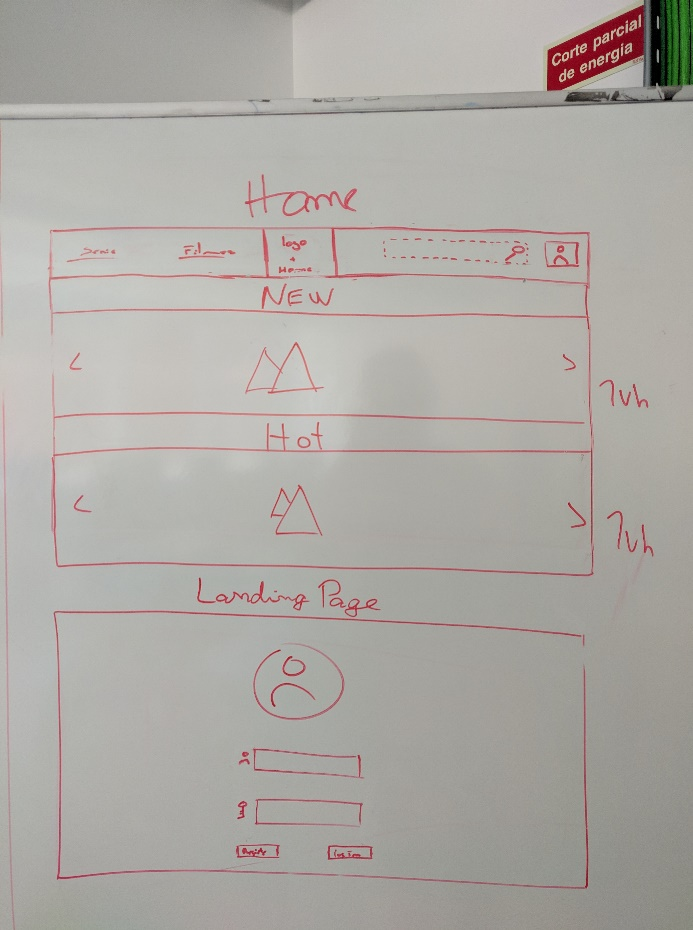 Corte parcial
de energia
Home
logo
+
Home
NEW
< >
7vh
Hot
< >
7vh
Landing Page